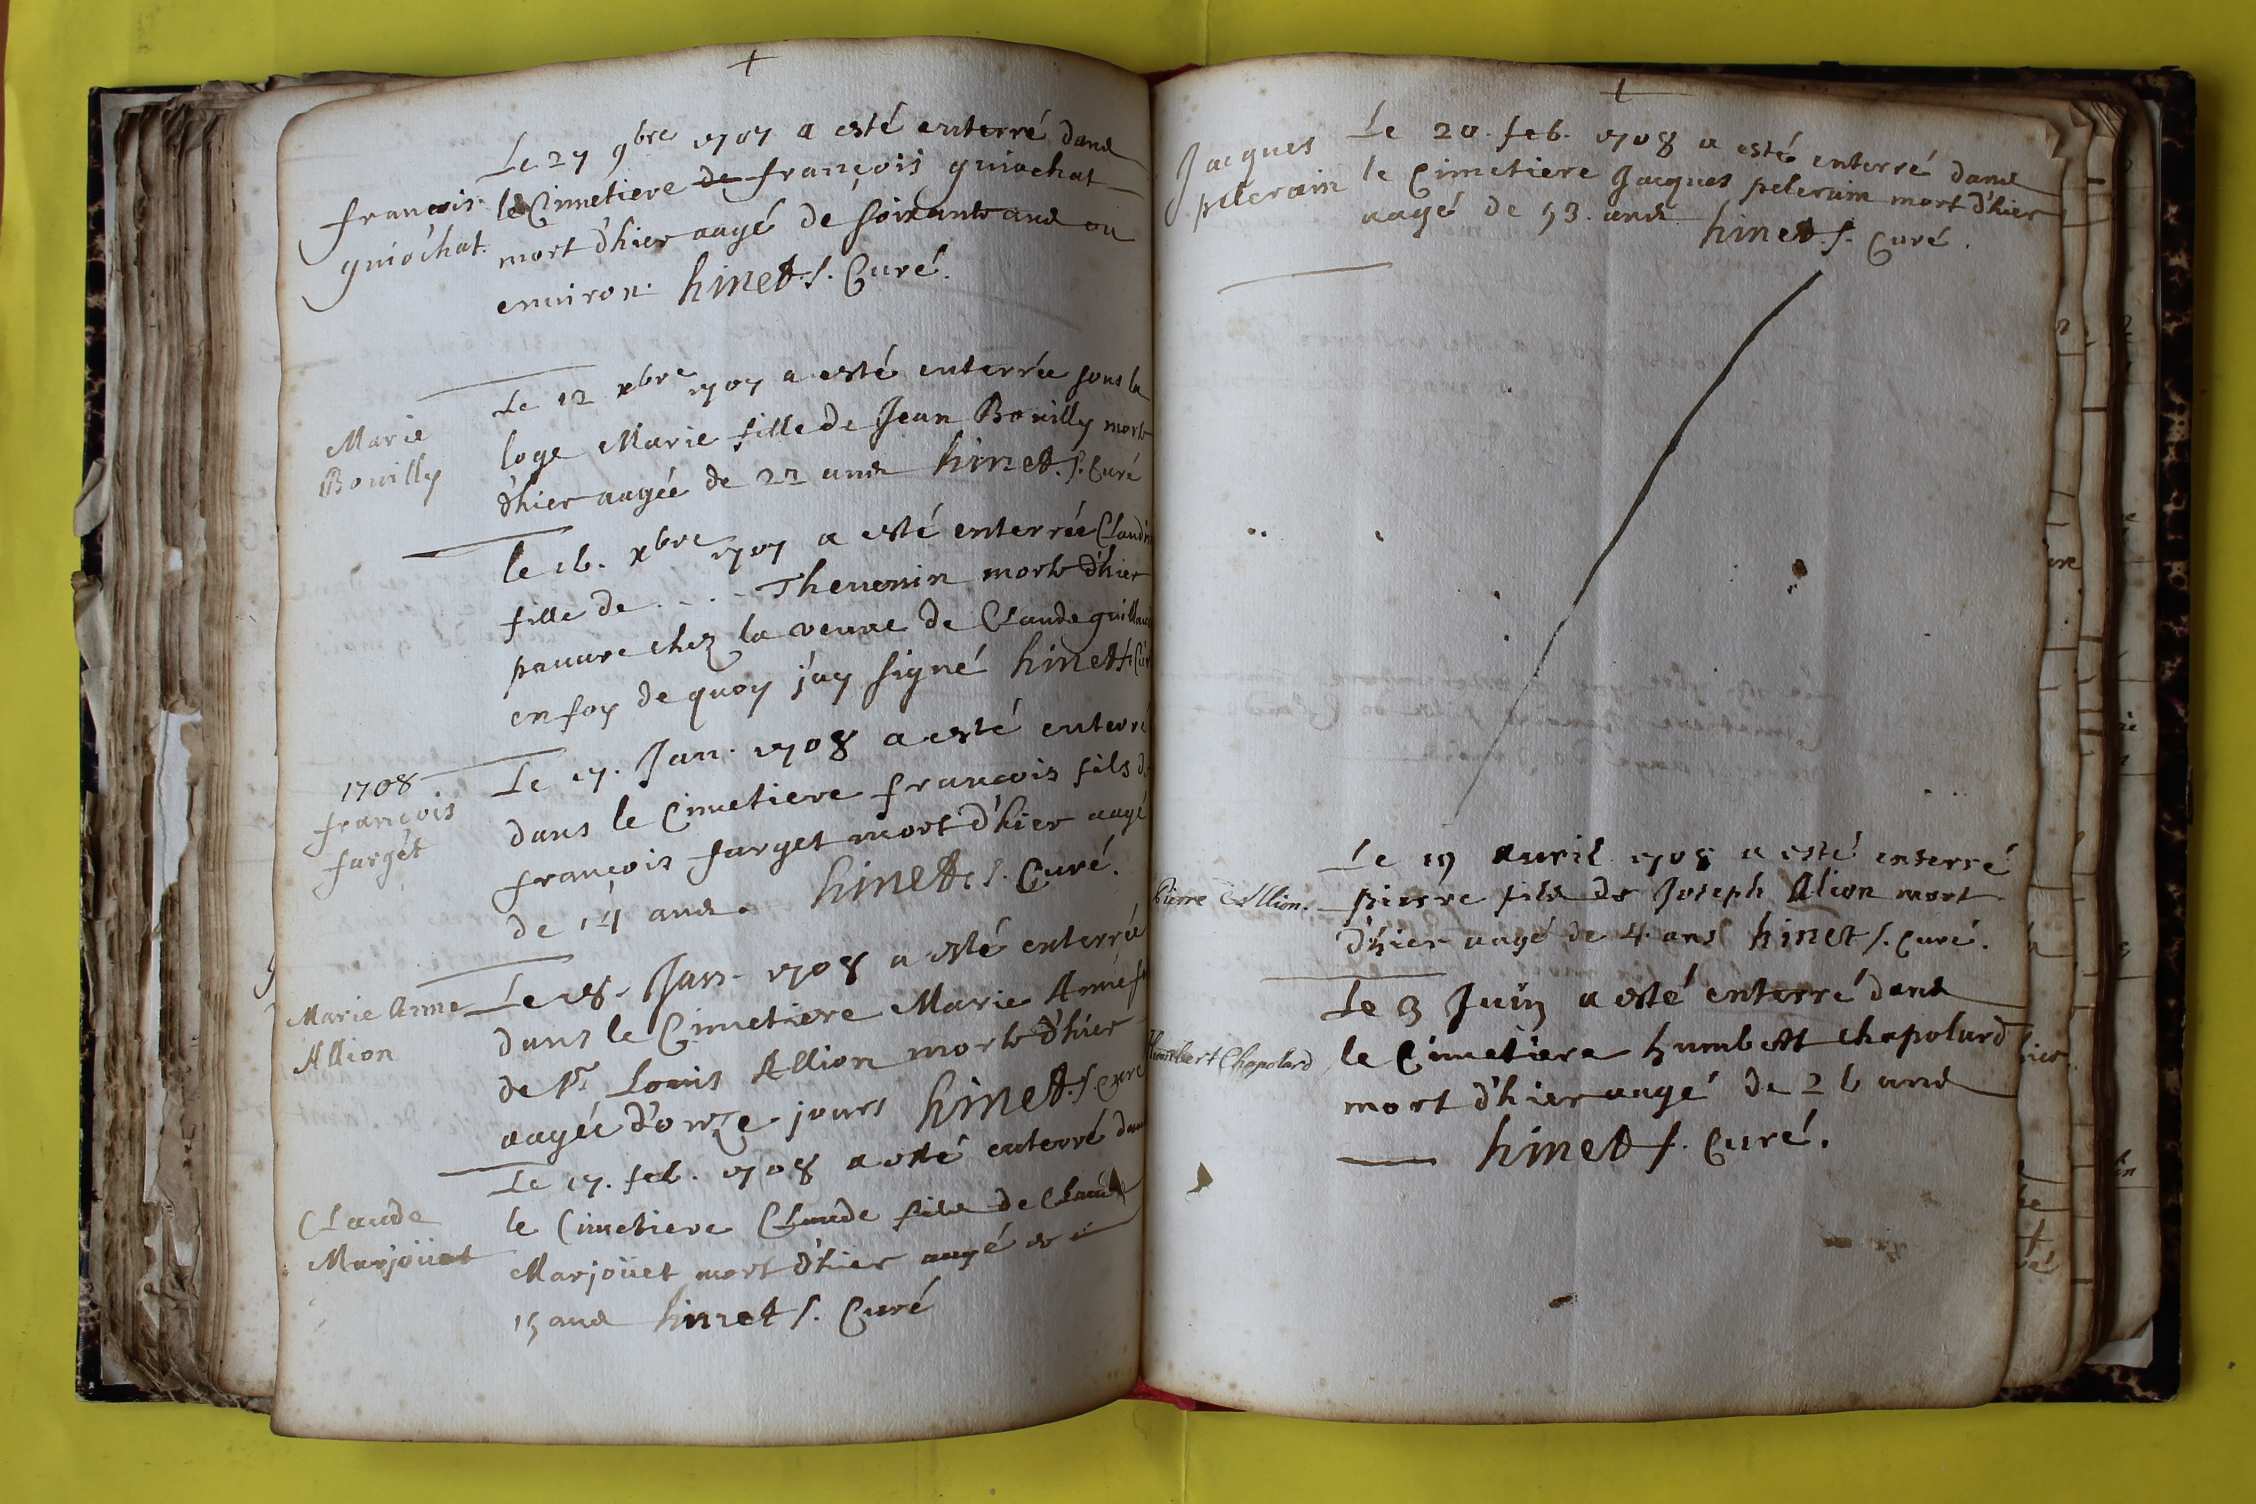 Le 27 9bre 1707 a esté enterré dans
françois guiochat.
le Cimetiere de françois guiochat
mort d'hier aagé de soixante ans ou
environ. hinet. s. Curé.
Le 12 xbre 1707 a esté enterrée sous la
Marie Bouilly
loge Marie fille de Jean Bouilly morte
d'hier aagée de 22 ans hinet. s. Curé
le 16. xbre 1707 a esté enterrée
fille de . . . . Thevenin morte d'hier
pauvre chez la veuve de Claude
en foy de quoy j'ay signé hinet s.
1708
françois farget
Le 17. Jan. 1708 a esté enterré
dans le Cimetiere françois fils de
françois farget mort d'hier aagé
de 14 ans. hinet s. Curé.
Marie Anne Allion
Le 18. Jan. 1708 a esté enterrée
dans le Cimetiere Marie Anne
de Sr Louis Allion morte d'hier
aagée d'onze jours hinet. s. Curé
Claude Marjoüet
Le 17. feb. 1708 a esté enterré dans
le Cimetiere Claude fils de Claude
Marjoüet mort d'hier aagé de
15 ans hinet s. Curé
Jacques pelerain
Le 20. feb. 1708 a esté enterré dans
le Cimetiere Jacques pelerain mort d'hier
aagé de 53. ans hinet. s. Curé.
Le 19 avril 1708 a esté enterré
Pierre Allion.
pierre fils de Joseph Alion mort
d'hier aagé de 4. ans hinet s. Curé.
Le 3 Juin a esté enterré dans
Humbert Chapolard
le Cimetiere humbert chapolard
mort d'hier aagé de 26 ans
hinet s. Curé.